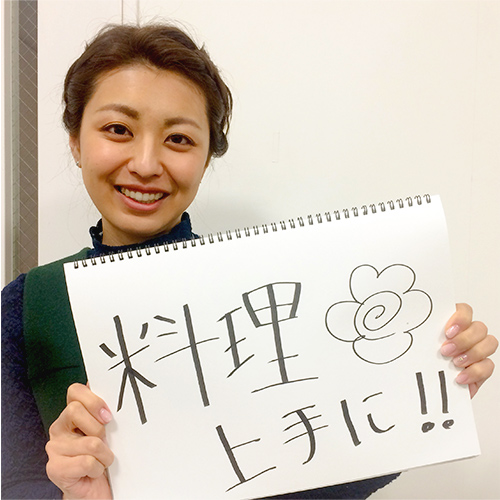 料理
上手に!!